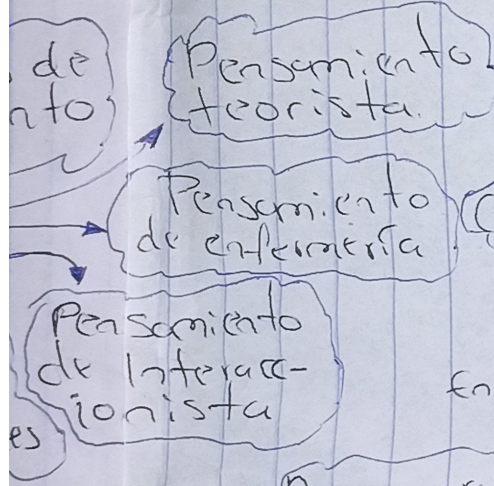 de
nto
Pensamiento
teorista.
Pensamiento
de enfermería
Pensamiento
de Interacc-
ionista
es
En